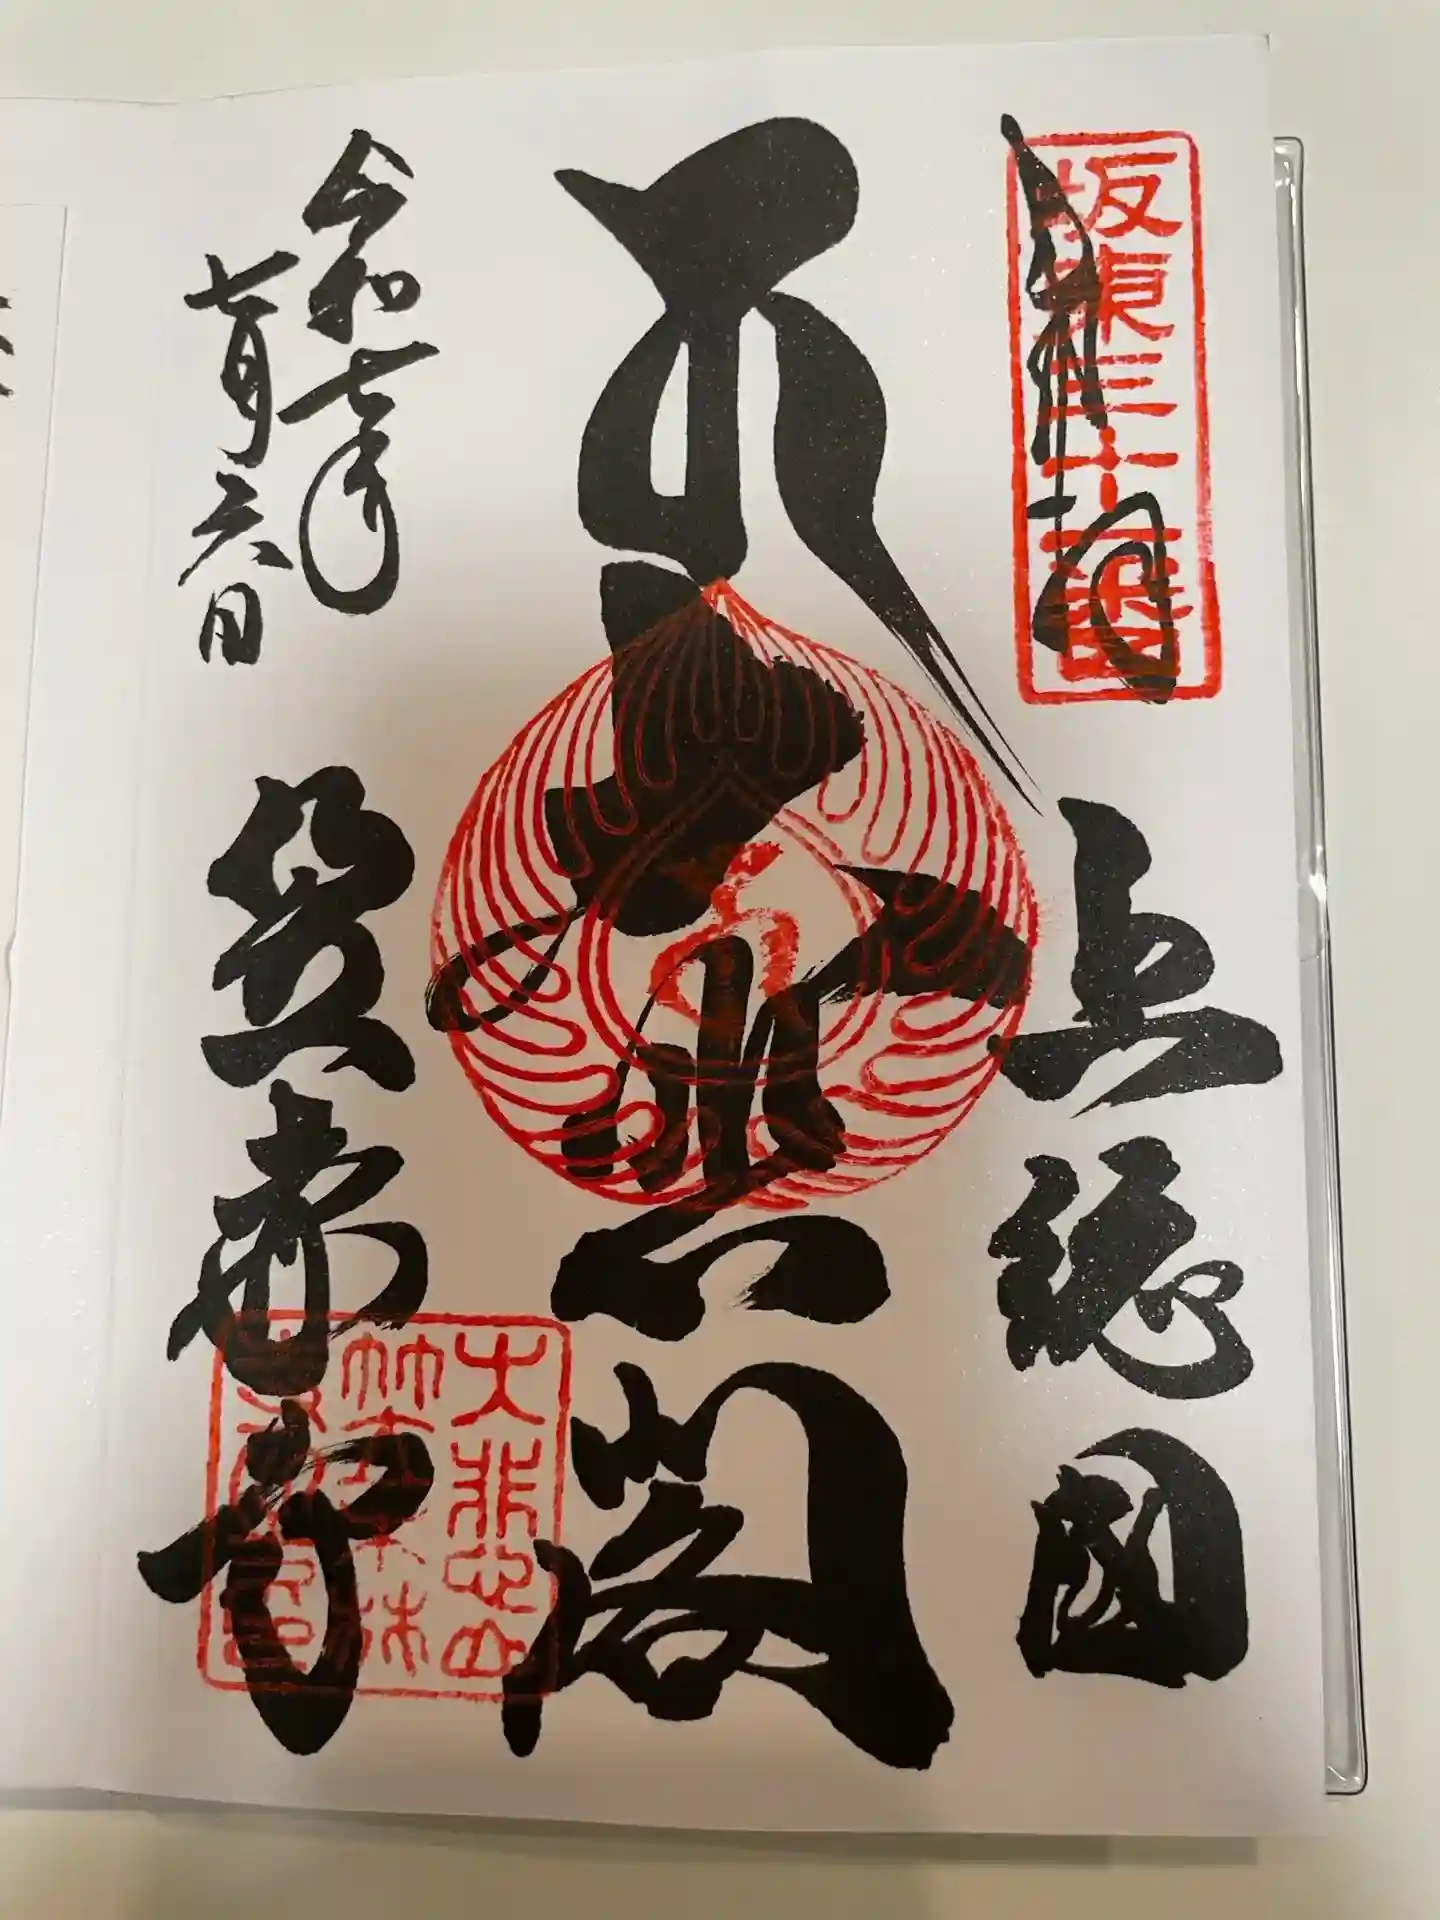 坂東三十一番
奉拝
上総国
大悲閣
令和七年
七月六日
笠森寺
大悲山
笠森